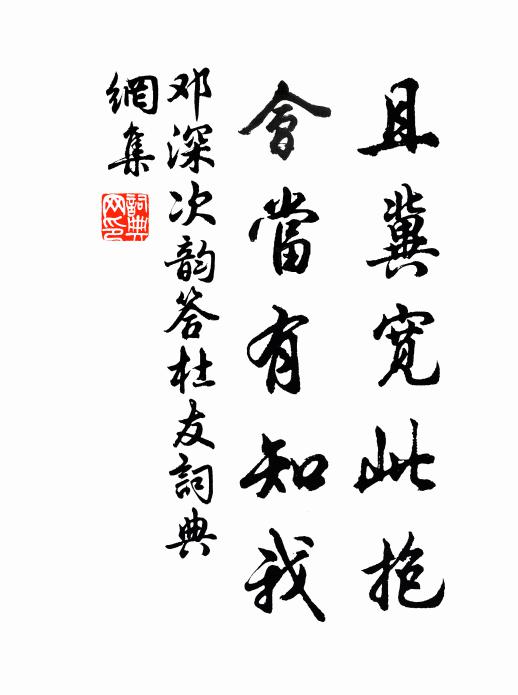 且冀宽此抱
會當有知我
邓深次韵答杜友詞典
網集
詞典
网印